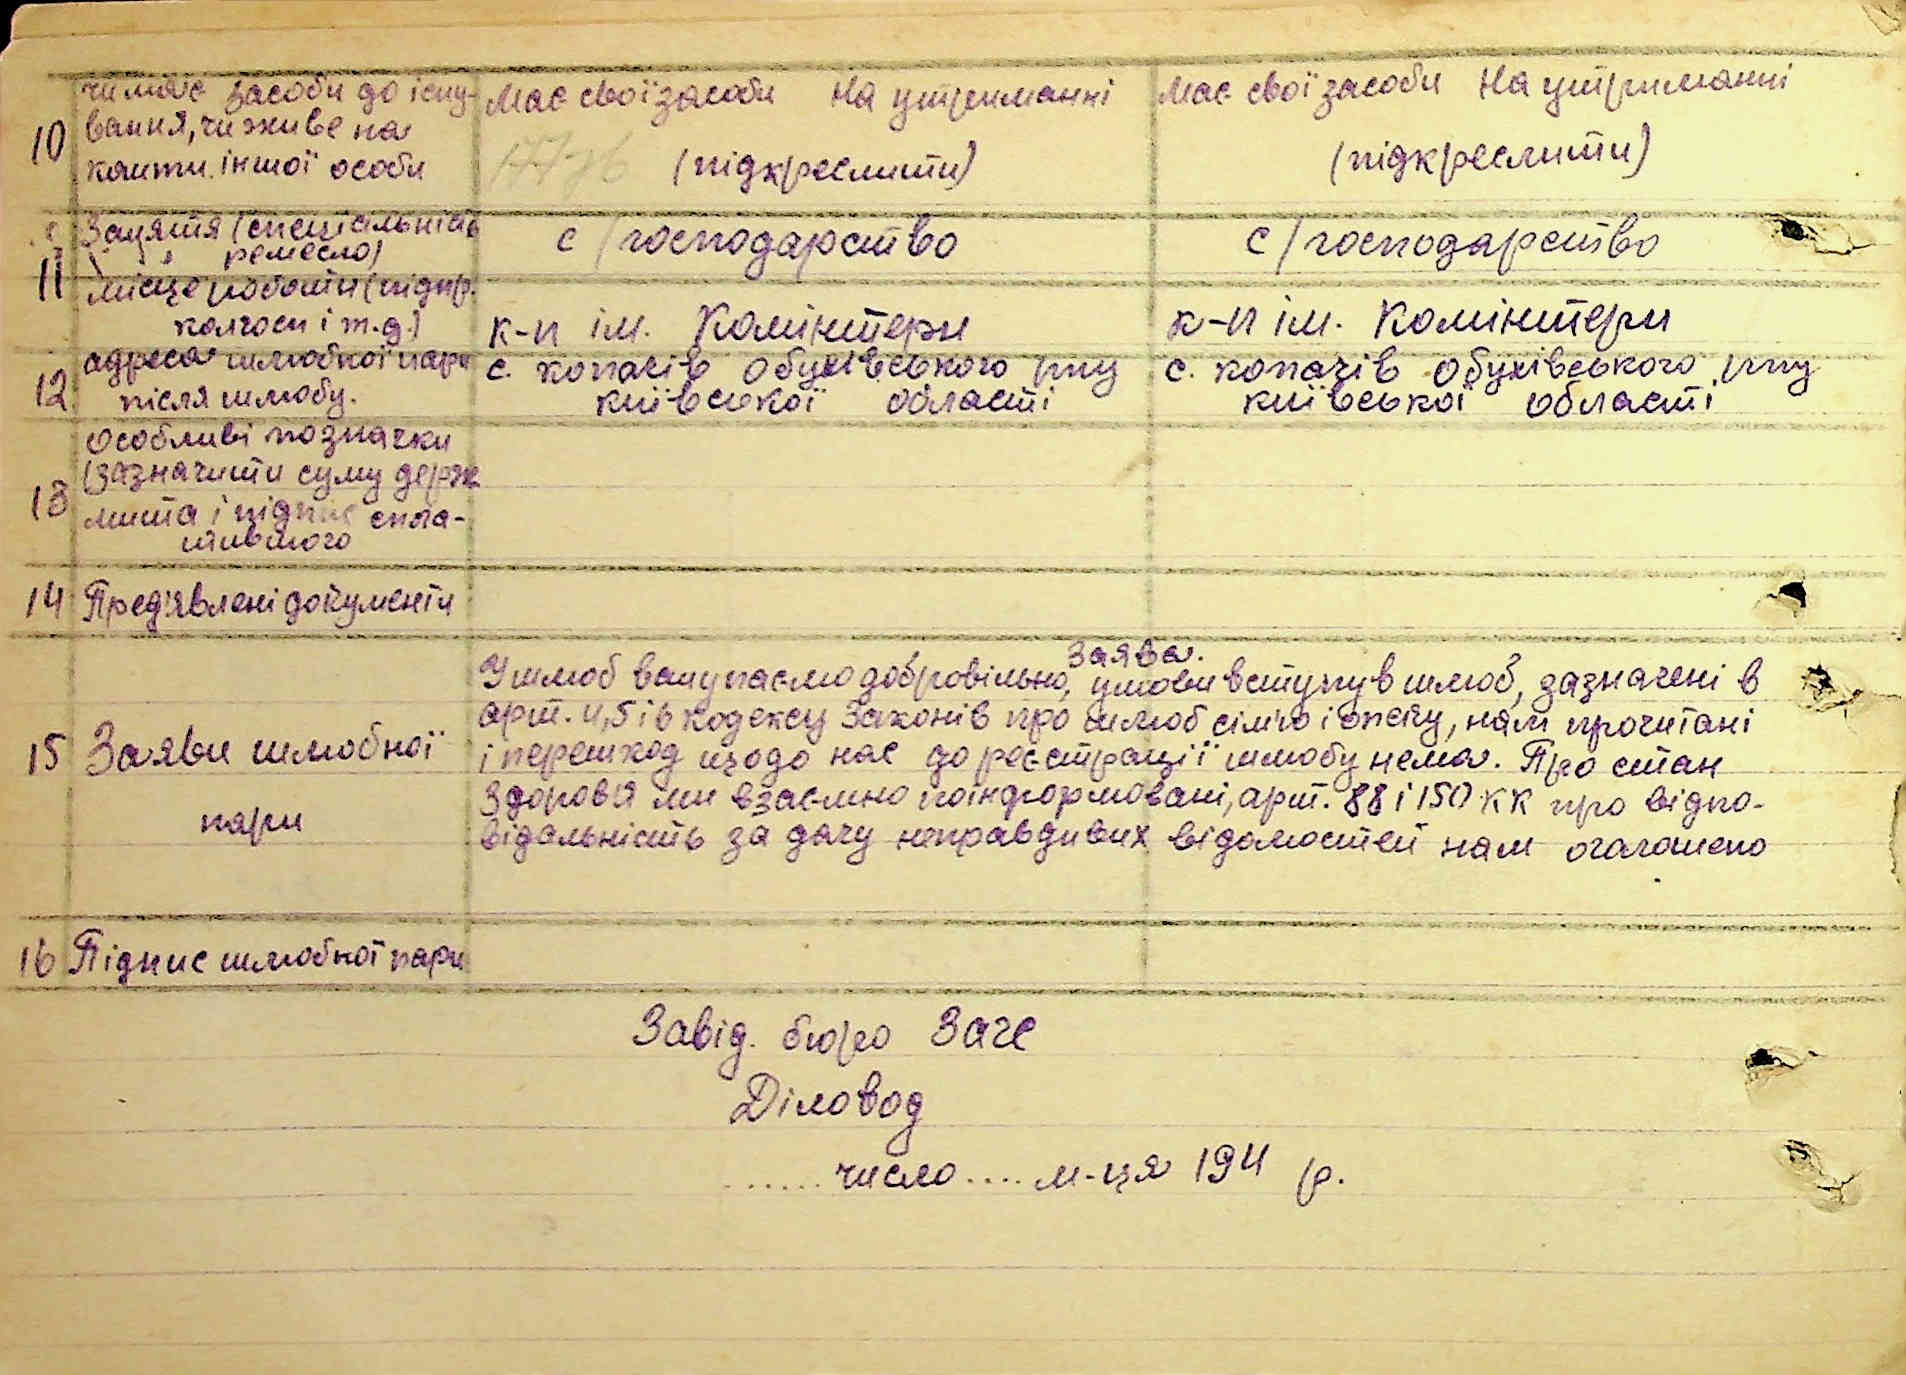 10 чи має засоби до існу- Має свої засоби На утриманні Має свої засоби На утриманні
вання, чи живе на
кошти іншої особи (підкреслити) (підкреслити)
11 Заняття (спеціальність с/господарство с/господарство
ремесло)
місце роботи (підпр.
колгосп і т.д.) к-п ім. Комінтерн к-п ім. Комінтерн
12 адреса шлюбної пари с. копачів Обухівського рну с. копачів Обухівського рну
після шлюбу. київської області київської області
13 особливі позначки
(зазначити суму держ
мита і підпис спла-
тившого
14 Пред'явлені документи
Заява.
У шлюб вступаємо добровільно, умови вступу в шлюб, зазначені в
арт. 4,5 і 6 кодексу Законів про шлюб сім'ю і опеку, нам прочитані
15 Заяви шлюбної і перешкод щодо нас до реєстрації шлюбу нема. Про стан
пари здоров'я ми взаємно поінформовані, арт. 88 і 150 КК про відпо-
відальність за дачу неправдивих відомостей нам оголошено
16 Підпис шлюбної пари
Завід. бюро Загс
Діловод
...... число .... м-ця 194 р.